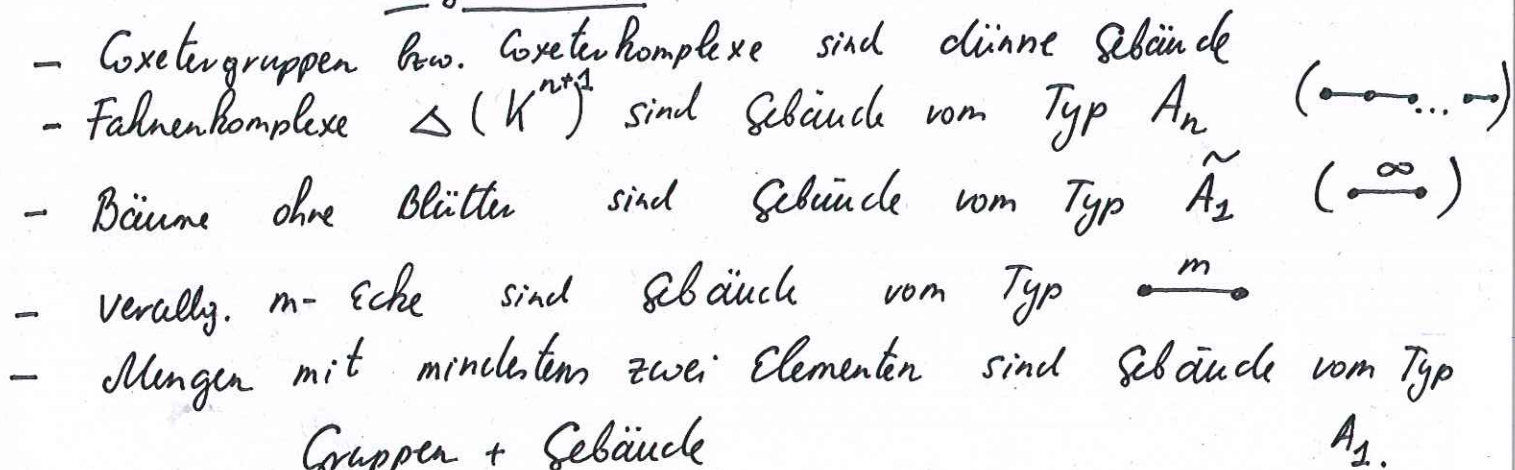 - Coxetergruppen bzw. Coxeterkomplexe sind dünne Gebäude
- Fahnenkomplexe Δ(K^{n+1}) sind Gebäude vom Typ A_n (•—•—•...•—•)
- Bäume ohne Blätter sind Gebäude vom Typ Ã_1 (•—∞—•)
- verallg. m-Ecke sind Gebäude vom Typ •—m—•
- Mengen mit mindestens zwei Elementen sind Gebäude vom Typ
A_1.
Gruppen + Gebäude